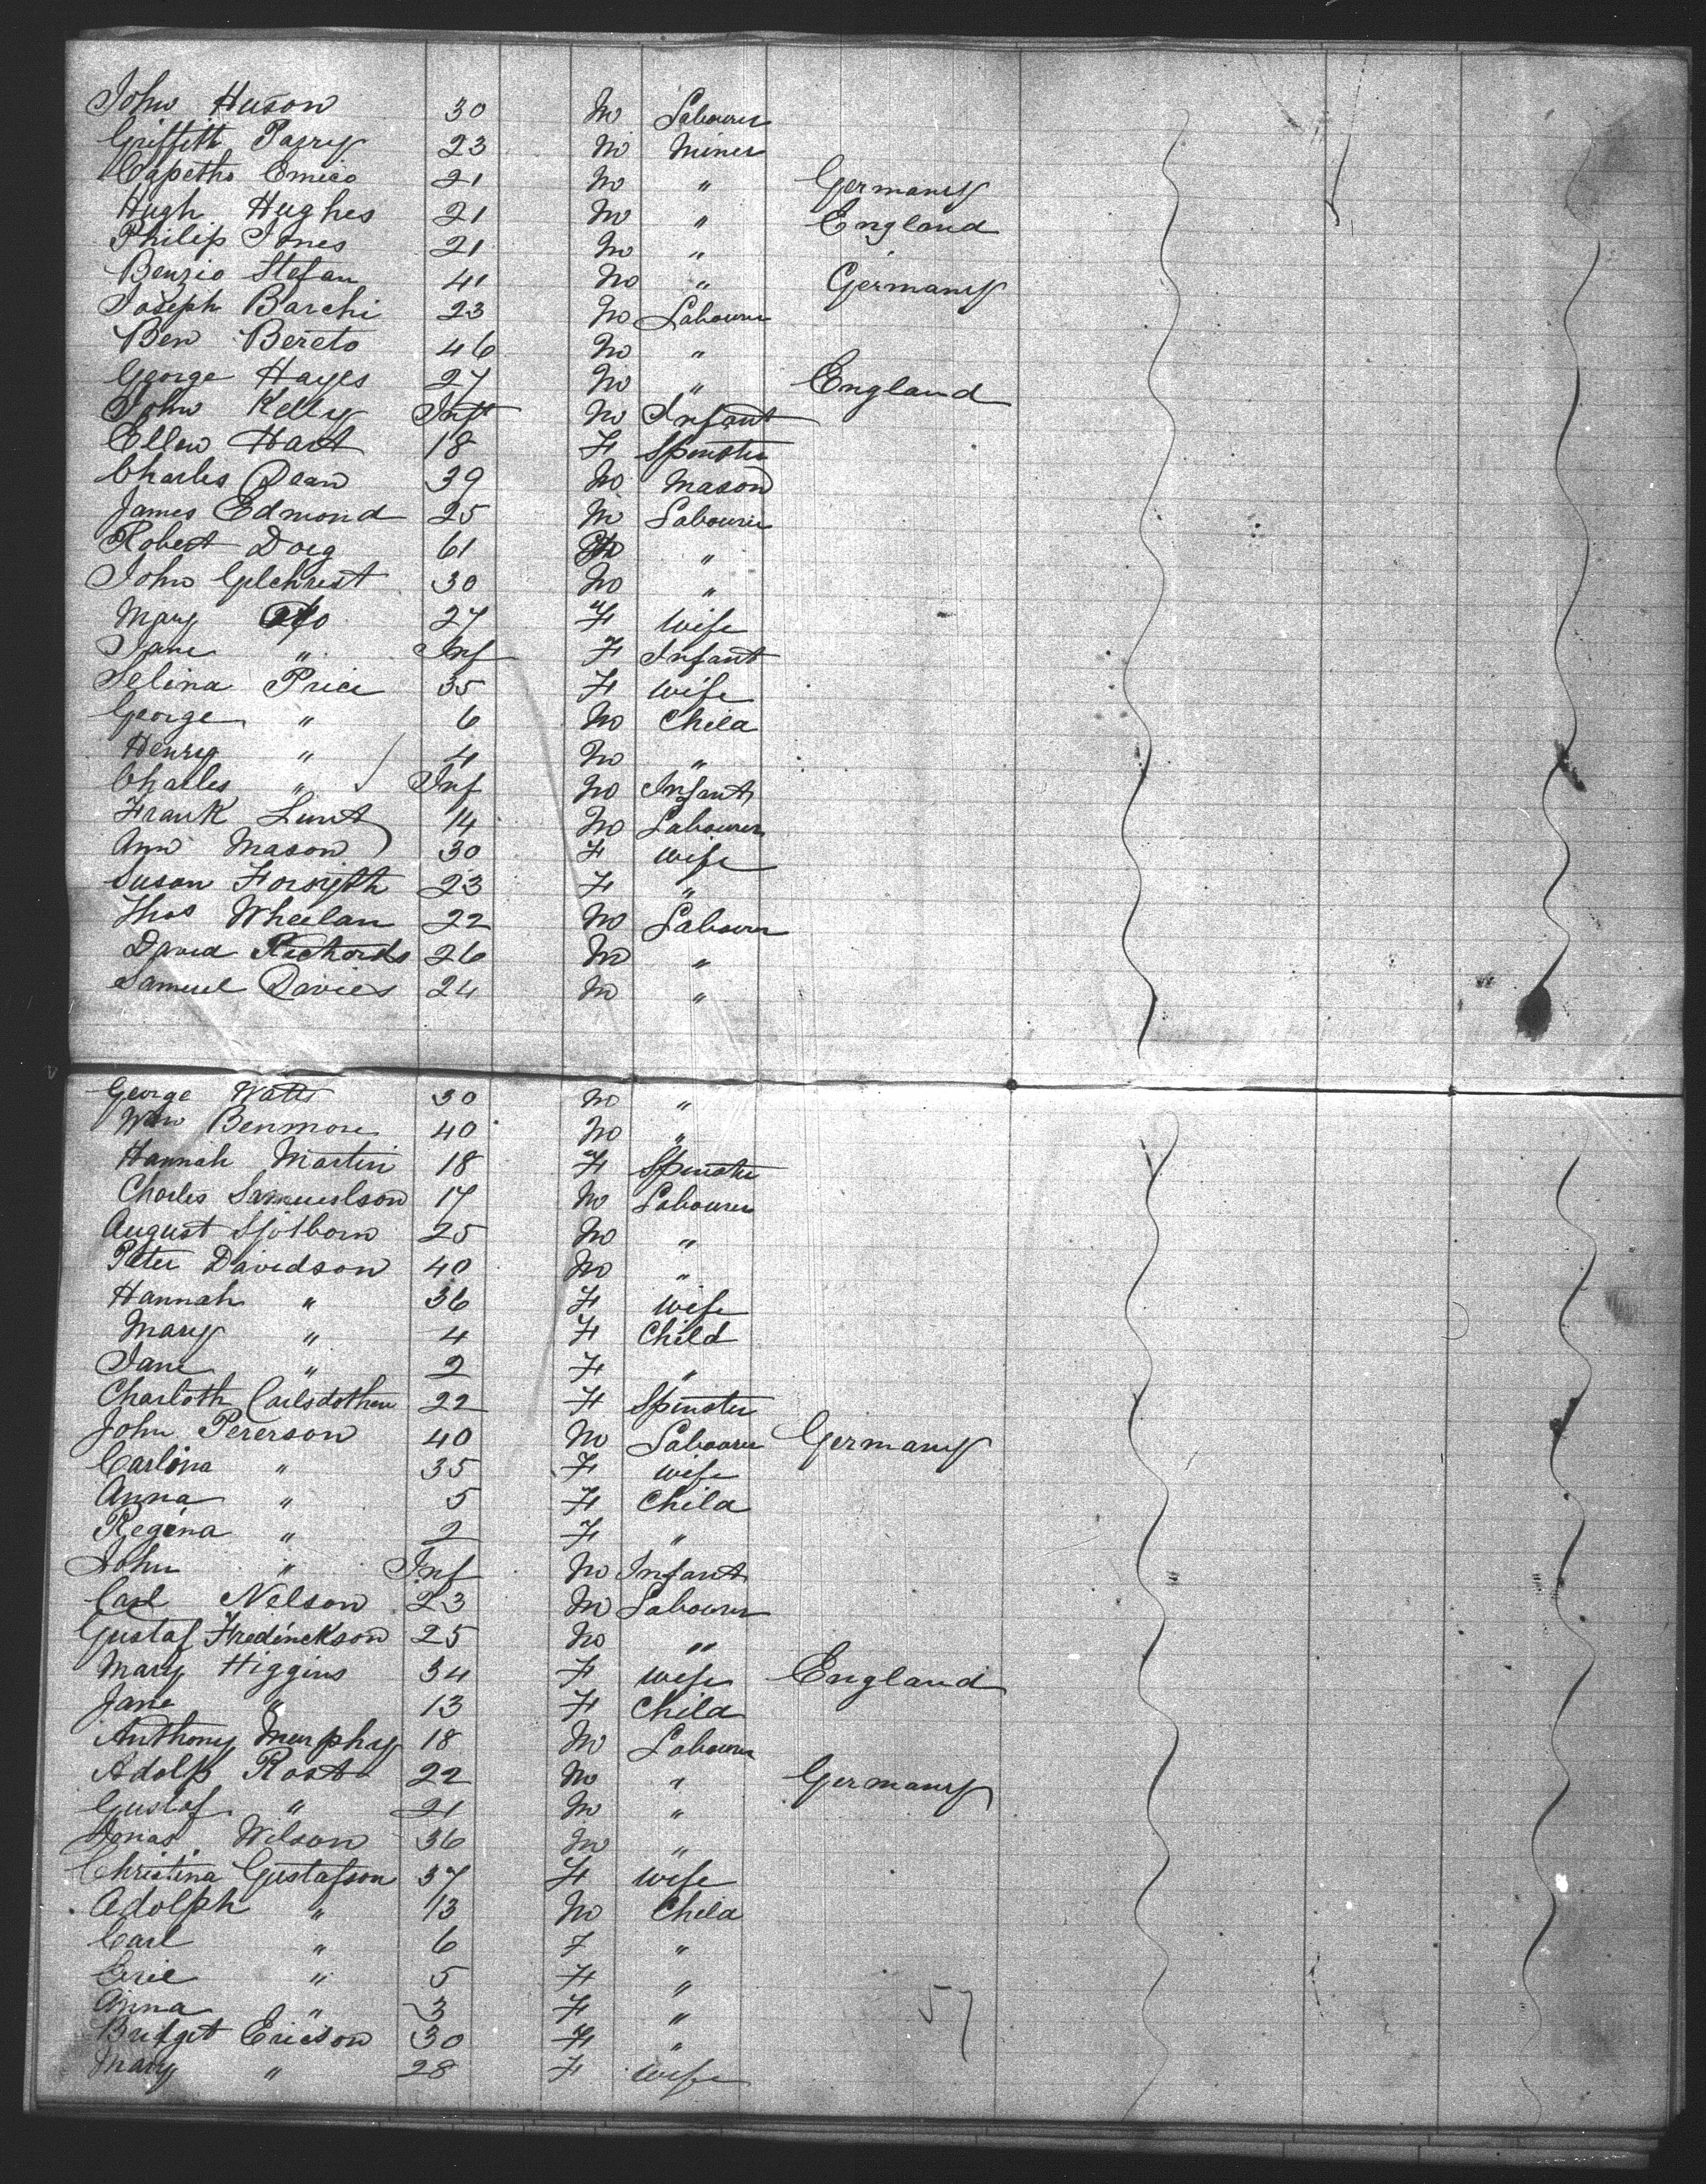 John Huson 30 M Labourer
Griffith Parry 23 M Miner
Capetho Emico 21 M " Germany
Hugh Hughes 21 M " England
Philip Jones 21 M "
Benzio Stefan 41 M " Germany
Joseph Barchi 23 M Labourer
Ben Bereto 46 M "
George Hayes 27 M " England
John Kelly Inft M Infant
Ellen Hart 18 F Spinster
Charles Dean 39 M Mason
James Edmond 25 M Labourer
Robert Doig 61 M "
John Gilchrist 30 M "
Mary do 27 F Wife
Jane " Inf F Infant
Selina Price 35 F Wife
George " 6 M Child
Henry " 4 M "
Charles " Inf M Infant
Frank Lunt 14 M Labourer
Ann Mason 30 F Wife
Susan Forsyth 23 F "
Thos Wheelan 22 M Labourer
David Richards 26 M "
Samuel Davies 24 M "
George Watts 30 M "
Wm Benmore 40 M "
Hannah Martin 18 F Spinster
Charles Samuelson 17 M Labourer
August Sjolborn 25 M "
Peter Davidson 40 M "
Hannah " 36 F Wife
Mary " 4 F Child
Jane " 2 F "
Charloth Carlsdother 22 F Spinster
John Pererson 40 M Labourer Germany
Carlina " 35 F Wife
Anna " 5 F Child
Regina " 2 F "
John " Inf M Infant
Carl Nelson 23 M Labourer
Gustaf Fredinckson 25 M "
Mary Higgins 34 F Wife England
Jane " 13 F Child
Anthony Murphy 18 M Labourer
Adolf Rost 22 M " Germany
Gustaf " 21 M "
Jonas Wilson 36 M "
Christina Gustafson 37 F Wife
Adolph " 13 M Child
Carl " 6 F "
Eric " 5 F "
Anna " 3 F "
Bridget Ericson 30 F "
Mary " 28 F Wife
57